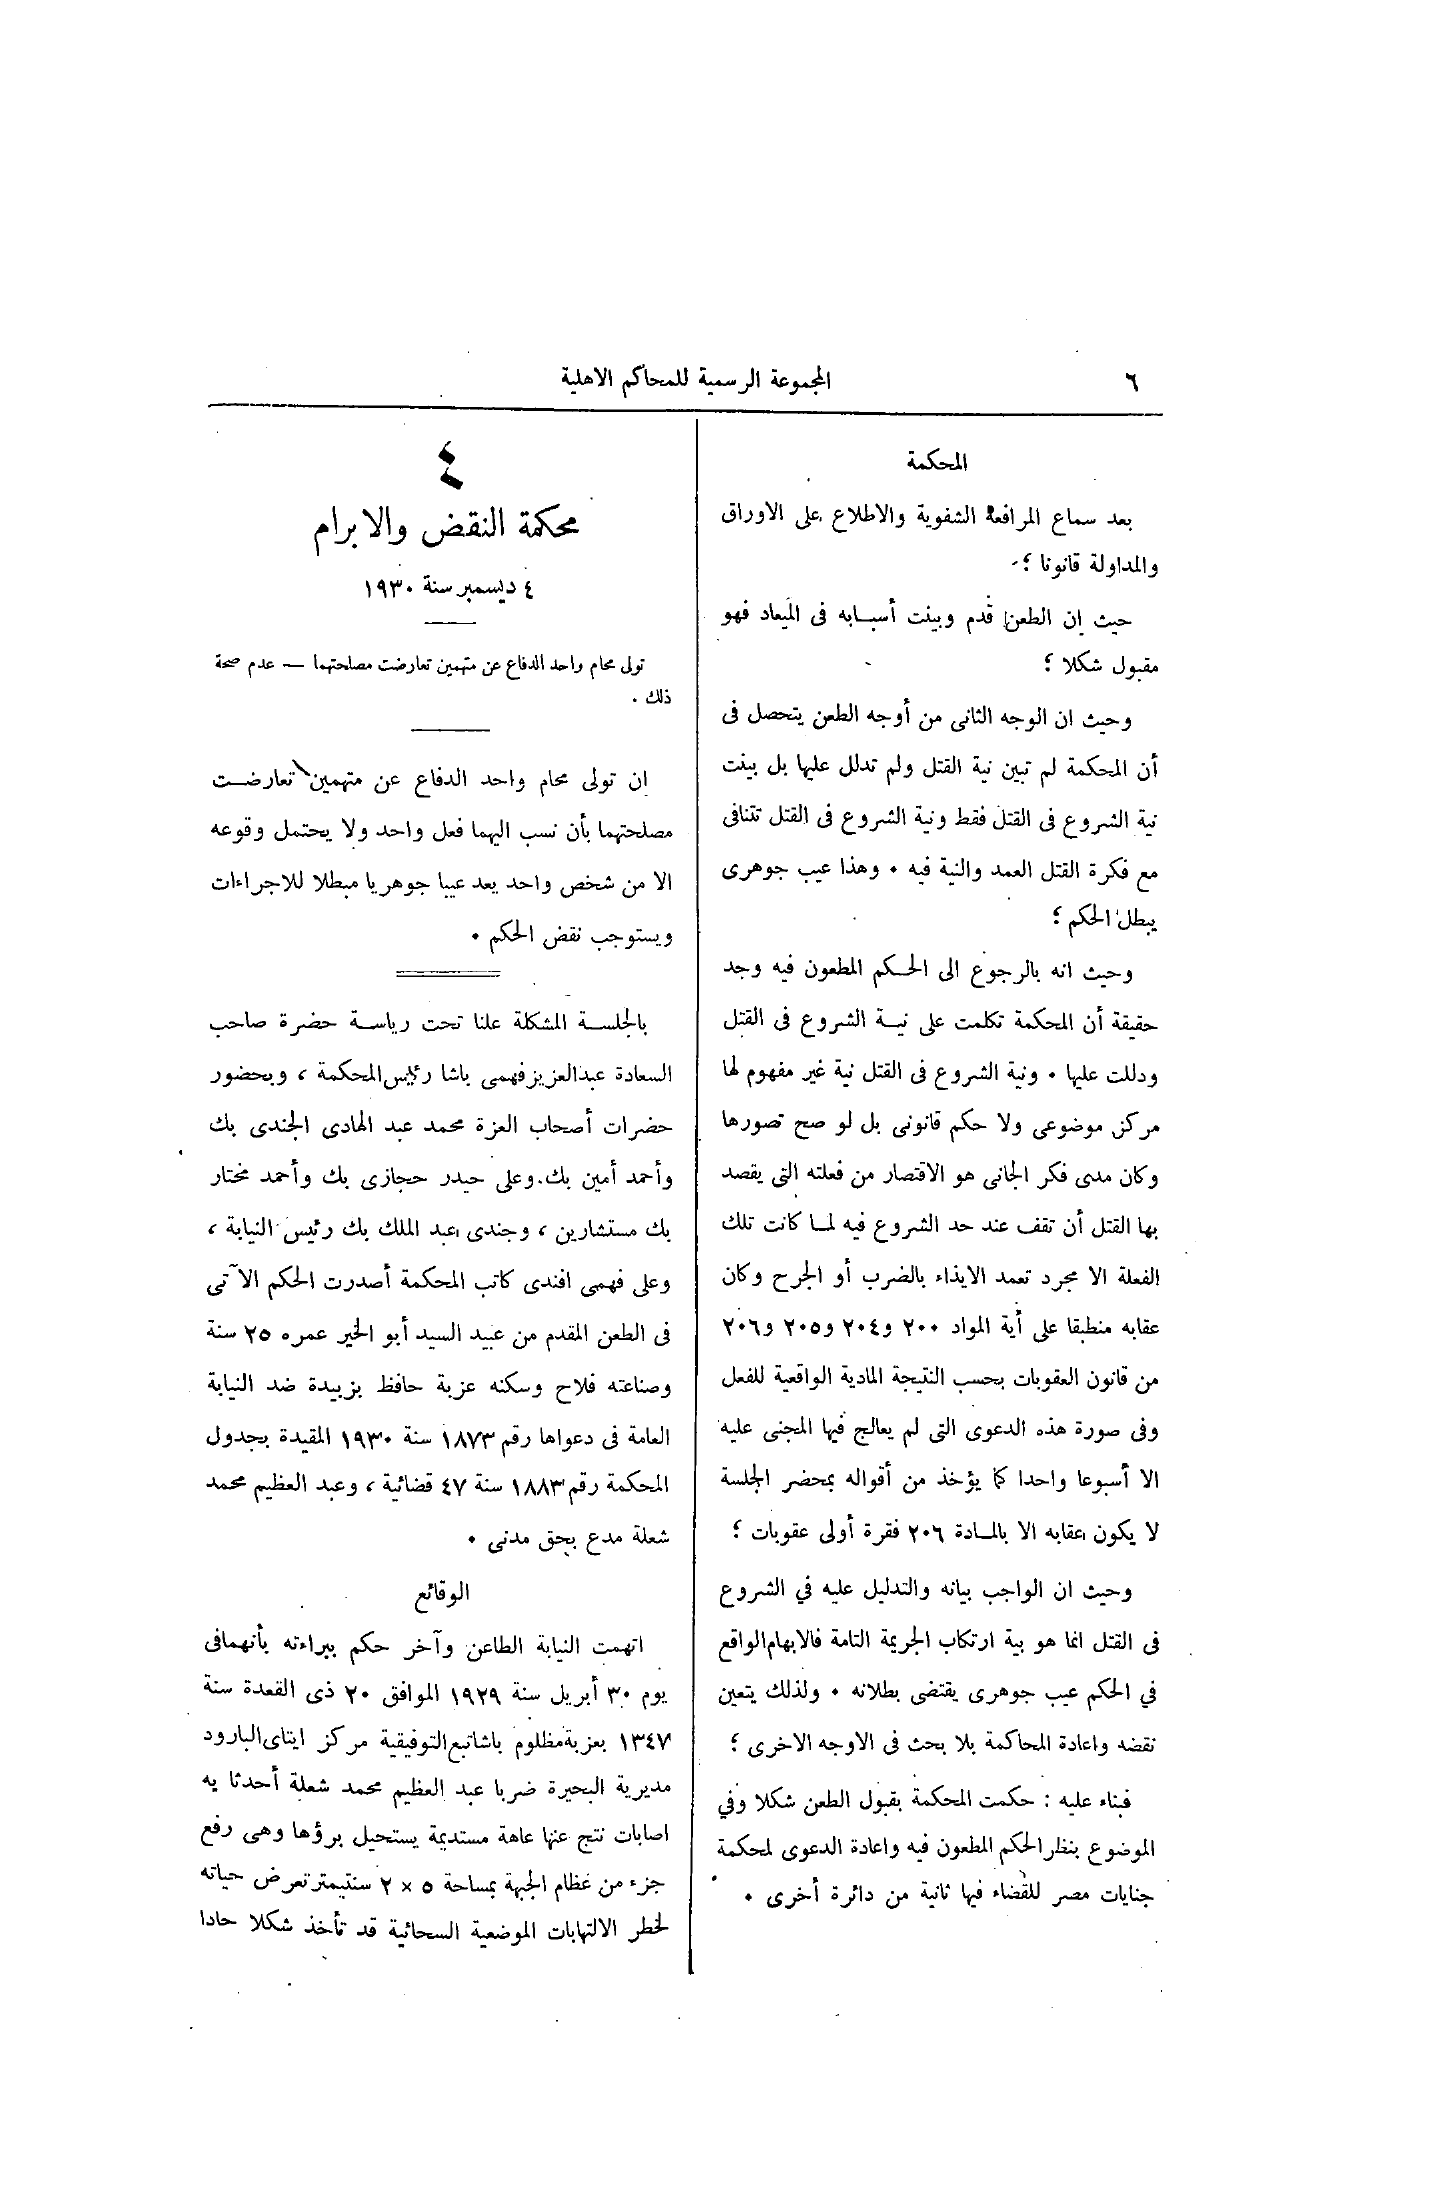 ٦
المجموعة الرسمية للمحاكم الاهلية
المحكمة
بعد سماع المرافعة الشفوية والاطلاع على الاوراق
والمداولة قانونا ؛
حيث إن الطعن قدم وبينت أسبابه فى الميعاد فهو
مقبول شكلا ؛
وحيث ان الوجه الثانى من أوجه الطعن يتحصل فى
أن المحكمة لم تبين نية القتل ولم تدلل عليها بل بينت
نية الشروع فى القتل فقط ونية الشروع فى القتل تتنافى
مع فكرة القتل العمد والنية فيه . وهذا عيب جوهرى
يبطل الحكم ؛
وحيث انه بالرجوع الى الحكم المطعون فيه وجد
حقيقة أن المحكمة تكلمت على نية الشروع فى القتل
ودللت عليها . ونية الشروع فى القتل نية غير مفهوم لها
مركز موضوعى ولا حكم قانونى بل لو صح تصورها
وكان مدى فكر الجانى هو الاقتصار من فعلته التى يقصد
بها القتل أن تقف عند حد الشروع فيه لما كانت تلك
الفعلة الا مجرد تعمد الايذاء بالضرب أو الجرح وكان
عقابه منطبقا على أية المواد ٢٠٠ و٢٠٤ و٢٠٥ و٢٠٦
من قانون العقوبات بحسب النتيجة المادية الواقعية للفعل
وفى صورة هذه الدعوى التى لم يعالج فيها المجنى عليه
الا أسبوعا واحدا كما يؤخذ من أقواله بمحضر الجلسة
لا يكون عقابه الا بالمادة ٢٠٦ فقرة أولى عقوبات ؛
وحيث ان الواجب بيانه والتدليل عليه في الشروع
فى القتل انما هو بية ارتكاب الجريمة التامة فالابهام الواقع
في الحكم عيب جوهرى يقتضى بطلانه . ولذلك يتعين
نقضه واعادة المحاكمة بلا بحث فى الاوجه الاخرى ؛
فبناء عليه : حكمت المحكمة بقبول الطعن شكلا وفي
الموضوع بنظر الحكم المطعون فيه واعادة الدعوى لمحكمة
جنايات مصر للقضاء فيها ثانية من دائرة أخرى .
٤
محكمة النقض والابرام
٤ ديسمبر سنة ١٩٣٠
تولى محام واحد الدفاع عن متهمين تعارضت مصلحتهما — عدم صحة
ذلك .
ان تولى محام واحد الدفاع عن متهمين تعارضت
مصلحتهما بأن نسب اليهما فعل واحد ولا يحتمل وقوعه
الا من شخص واحد يعد عيبا جوهريا مبطلا للاجراءات
ويستوجب نقض الحكم .
بالجلسة المشكلة علنا تحت رياسة حضرة صاحب
السعادة عبد العزيز فهمى باشا رئيس المحكمة ، وبحضور
حضرات أصحاب العزة محمد عبد الهادى الجندى بك
وأحمد أمين بك وعلى حيدر حجازى بك وأحمد مختار
بك مستشارين ، وجندى عبد الملك بك رئيس النيابة ،
وعلى فهمى افندى كاتب المحكمة أصدرت الحكم الآتى
فى الطعن المقدم من عبيد السيد أبو الخير عمره ٢٥ سنة
وصناعته فلاح وسكنه عزبة حافظ بزبيدة ضد النيابة
العامة فى دعواها رقم ١٨٧٣ سنة ١٩٣٠ المقيدة بجدول
المحكمة رقم ١٨٨٣ سنة ٤٧ قضائية ، وعبد العظيم محمد
شعلة مدع بحق مدنى .
الوقائع
اتهمت النيابة الطاعن وآخر حكم ببراءته بأنهما فى
يوم ٣٠ أبريل سنة ١٩٢٩ الموافق ٢٠ ذى القعدة سنة
١٣٤٧ بعزبة مظلوم باشا تبع التوفيقية مركز ايتاى البارود
مديرية البحيرة ضربا عبد العظيم محمد شعلة أحدثا به
اصابات نتج عنها عاهة مستديمة يستحيل برؤها وهى رفع
جزء من عظام الجبهة بمساحة ٥ × ٢ سنتيمتر تعرض حياته
لخطر الالتهابات الموضعية السحائية قد تأخذ شكلا حادا